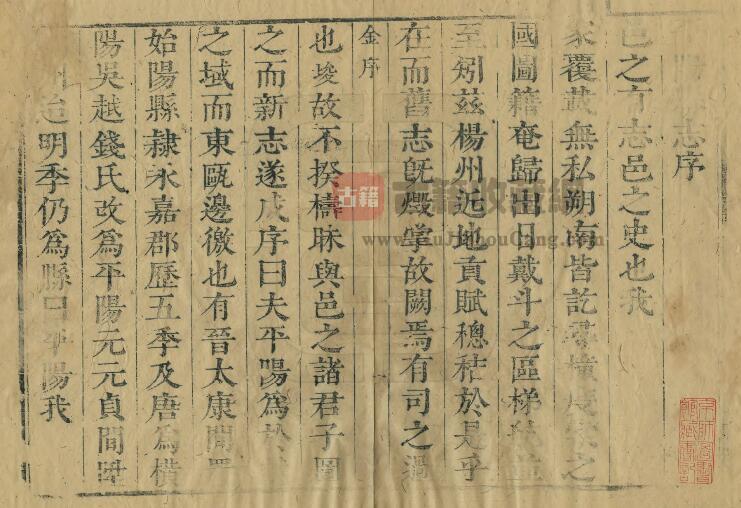 志序
邑之有志邑之史也我
家覆載無私朔南皆訖
之
國圖籍奄歸出日戴斗之區梯
至矧茲楊州近地貢賦穗秸於是乎
在而舊志旣燬掌故闕焉有司之過
金序
也埈故不揆檮昧與邑之諸君子圖
之而新志遂成序曰夫平陽爲於
之域而東甌邊徼也有晉太康間置
始陽縣隸永嘉郡歷五季及唐爲橫
陽吳越錢氏改爲平陽元元貞間陞
州迨明季仍爲縣曰平陽我
古籍
古籍收藏網
www.GuJiShouCang.com